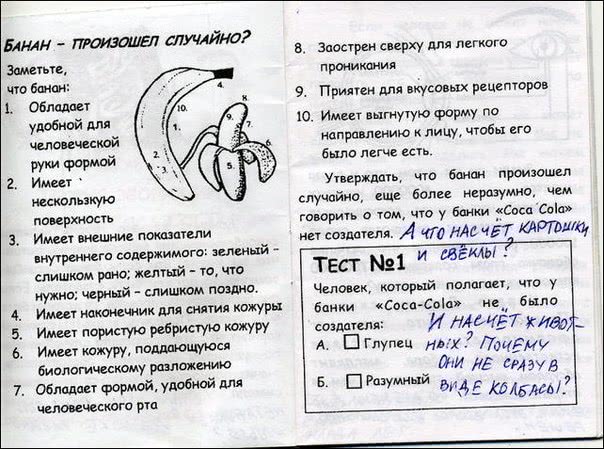 БАНАН – ПРОИЗОШЕЛ СЛУЧАЙНО?
Заметьте,
что банан:
1. Обладает
удобной для
человеческой
руки формой
2. Имеет
нескользкую
поверхность
3. Имеет внешние показатели
внутреннего содержимого: зеленый -
слишком рано; желтый – то, что
нужно; черный – слишком поздно.
4. Имеет наконечник для снятия кожуры
5. Имеет пористую ребристую кожуру
6. Имеет кожуру, поддающуюся
биологическому разложению
7. Обладает формой, удобной для
человеческого рта
10.
1.
2.
3.
4.
8.
9.
7.
5.
6.
8. Заострен сверху для легкого
проникания
9. Приятен для вкусовых рецепторов
10. Имеет выгнутую форму по
направлению к лицу, чтобы его
было легче есть.
Утверждать, что банан произошел
случайно, еще более неразумно, чем
говорить о том, что у банки «Coca Cola»
нет создателя. А ЧТО НАСЧЁТ КАРТОШКИ
И СВЁКЛЫ?
ТЕСТ №1
Человек, который полагает, что у
банки «Coca-Cola» не было
создателя:
А. Глупец
Б. Разумный
И НАСЧЁТ ЖИВОТ–
НЫХ? ПОЧЕМУ
ОНИ НЕ СРАЗУ В
ВИДЕ КОЛБАСЫ?